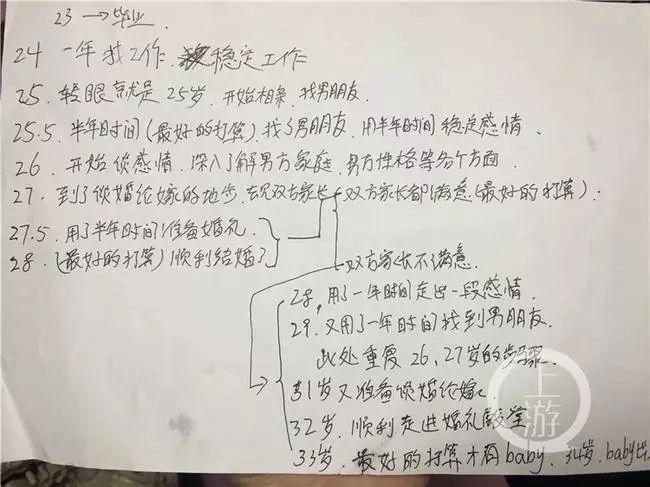 23 → 毕业.
24 一年找工作. 稳定工作
25. 转眼就是25岁. 开始相亲. 找男朋友.
25.5. 半年时间(最好的打算)找了男朋友. 用半年时间稳定感情.
26. 开始谈感情. 深入了解男方家庭. 男方性格等各个方面.
27. 到了谈婚论嫁的地步. 去见双方家长 双方家长都满意(最好的打算).
27.5. 用了半年时间准备婚礼.
28. (最好的打算)顺利结婚了
双方家长不满意.
28, 用了一年时间走出一段感情.
29. 又用了一年时间找到男朋友.
此处重复26、27岁的步骤.
31岁又准备谈婚论嫁.
32岁. 顺利走进婚礼殿堂
33岁. 最好的打算才有baby. 34岁. baby出
上游